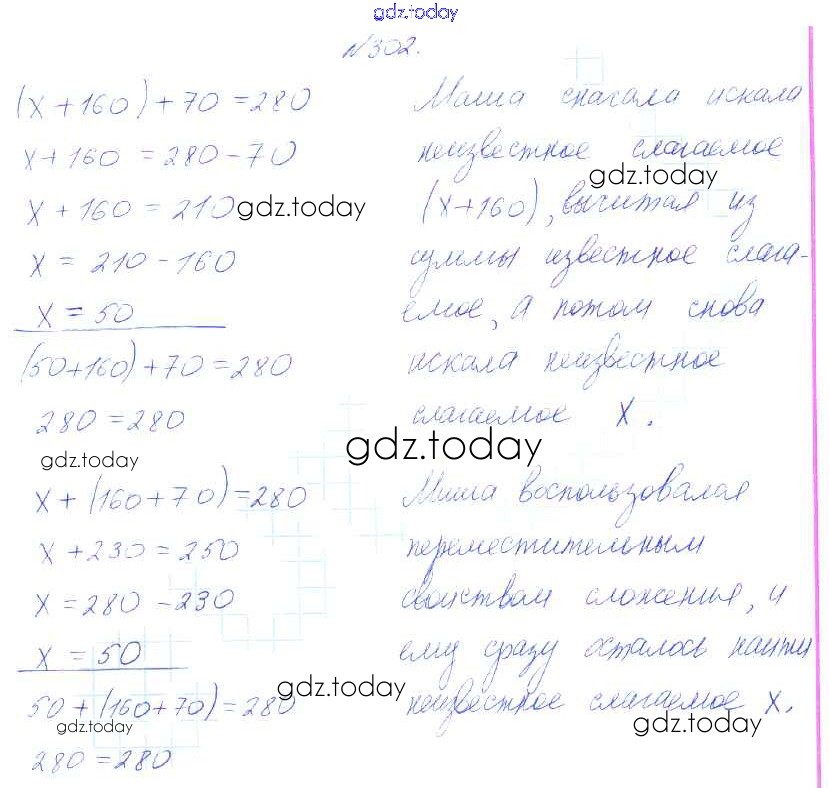 gdz.today
№302.
(x+160)+70=280
x+160=280-70
x+160=210
x=210-160
x=50
(50+160)+70=280
280=280
Маша сначала искала
неизвестное слагаемое
(x+160), вычитая из
суммы известное слага-
емое, а потом снова
искала неизвестное
слагаемое x.
gdz.today
gdz.today
gdz.today
gdz.today
x+(160+70)=280
x+230=250
x=280-230
x=50
50+(160+70)=280
280=280
Миша воспользовался
переместительным
свойством сложения, и
ему сразу осталось найти
неизвестное слагаемое x.
gdz.today
gdz.today
gdz.today